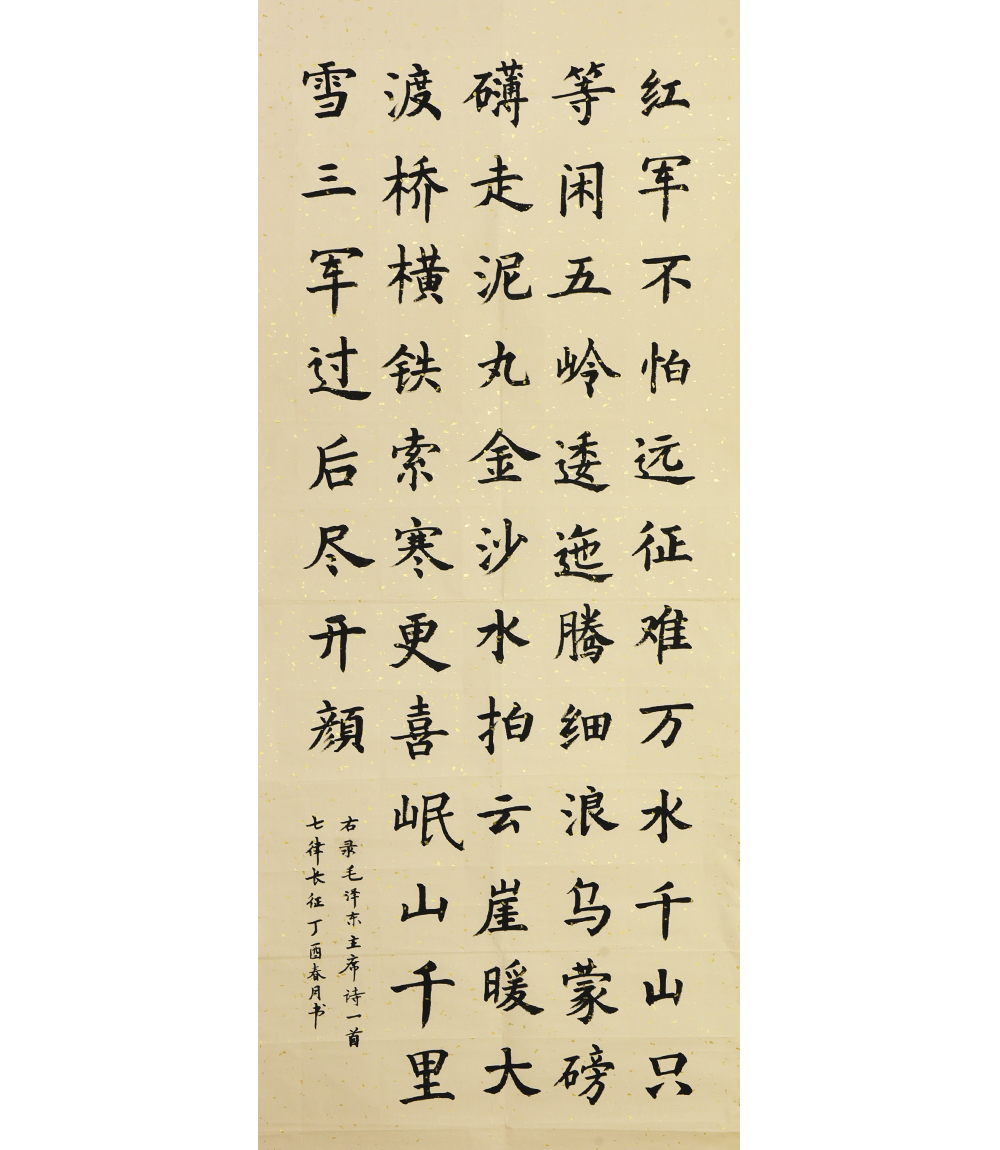 红军不怕远征难万水千山只
等闲五岭逶迤腾细浪乌蒙磅
礴走泥丸金沙水拍云崖暖大
渡桥横铁索寒更喜岷山千里
雪三军过后尽开颜
右录毛泽东主席诗一首
七律长征丁酉春月书